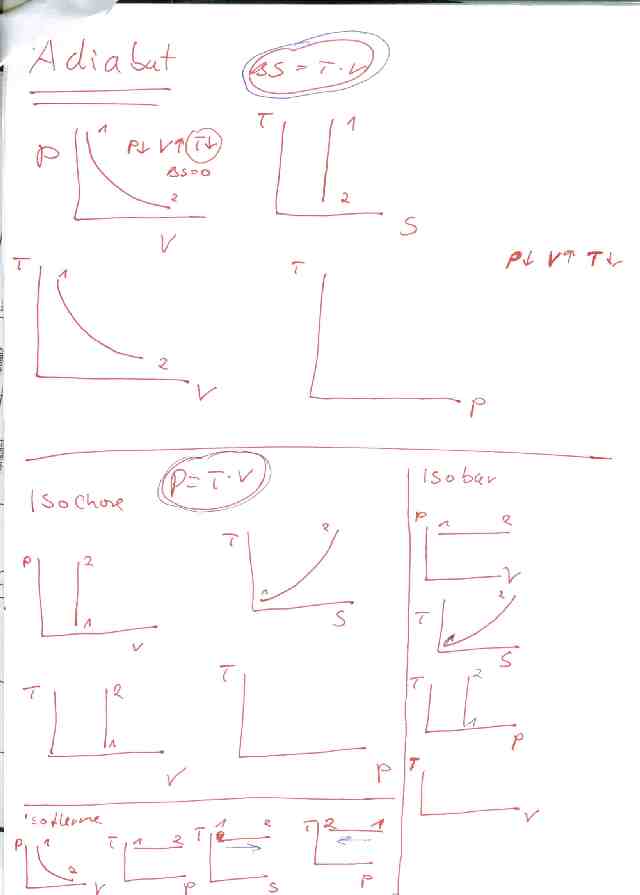 Adiabat
ΔS = T · V
P
1
P↓ V↑ T↓
ΔS=0
2
V
T
1
2
S
P↓ V↑ T↓
T
1
2
V
T
P
Isochore
P = T · V
Isobar
P
2
1
V
T
2
1
S
P
1
2
V
T
2
1
S
T
2
1
V
T
P
T
2
1
P
T
V
Isotherme
P
1
2
V
T
1
2
P
T
1
2
S
T
2
1
P